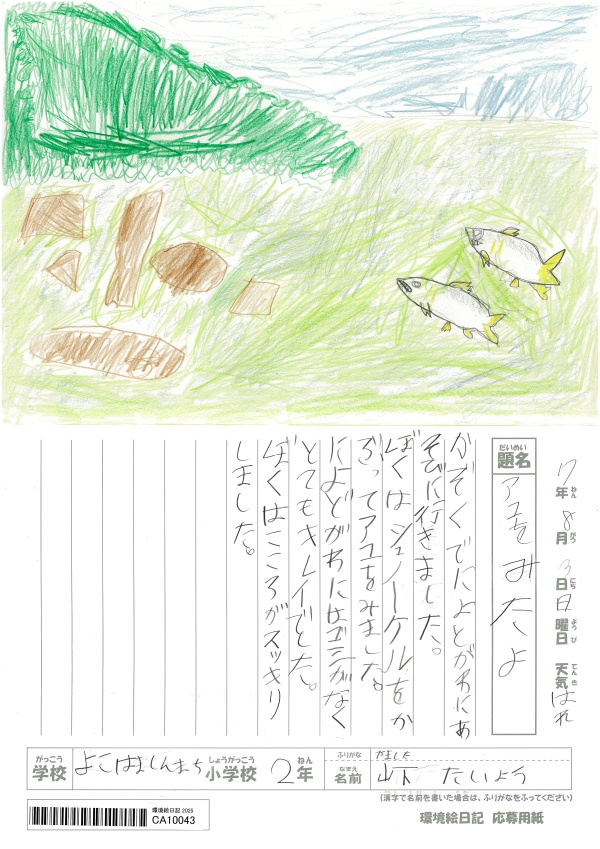 17年ねん 8月がつ 3日にち 日曜日ようび 天気てんき はれ
だいめい
題名 アユをみたよ
かぞくでによどがわにあ
そびに行きました。
ぼくはシュノーケルをか
ぶってアユをみました。
によどがわにはゴミがなく
とてもキレイでした。
ぼくはこころがスッキリ
しました。
がっこう しょうがっこう ねん ふりがな やました
学校 よこはましんまち 小学校 2年 なまえ 名前 山下 たいよう
(漢字で名前を書いた場合は、ふりがなをふってください)
環境絵日記 2025
CA10043
環境絵日記 応募用紙